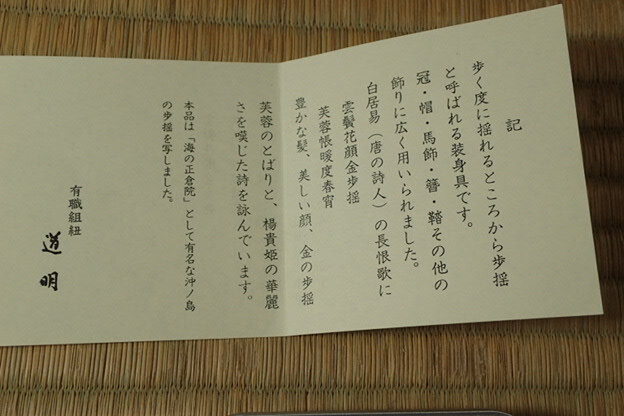 記
歩く度に揺れるところから歩揺
と呼ばれる装身具です。
冠・帽・馬飾・簪・鞜その他の
飾りに広く用いられました。
白居易（唐の詩人）の長恨歌に
雲鬢花顔金歩揺
芙蓉帳暖度春宵
豊かな髪、美しい顔、金の歩揺
芙蓉のとばりと、楊貴姫の華麗
さを嘆じた詩を詠んでいます。
本品は「海の正倉院」として有名な沖ノ島
の歩揺を写しました。
有職組紐
道明